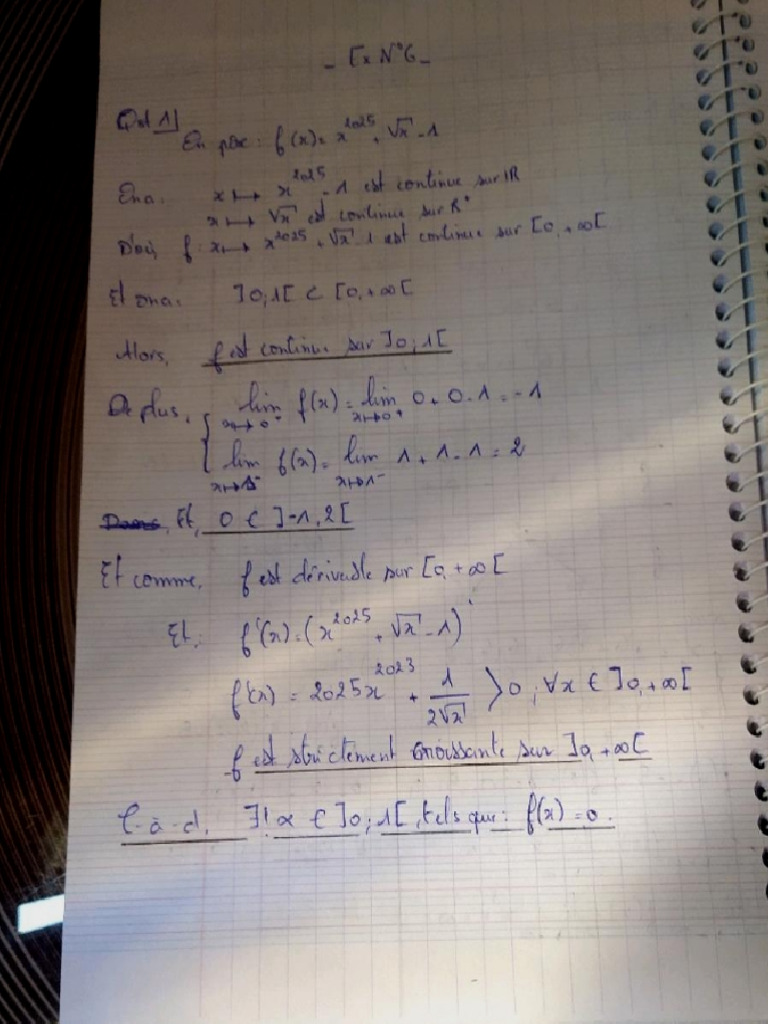 - Ex N°6 -
Qst 1]
En pose : f(x) = x^2025 + √x - 1
Ona : x ↦ x^2025 - 1 est continue sur IR
x ↦ √x est continue sur R⁺
D'où, f : x ↦ x^2025 + √x - 1 est continue sur [0, +∞[
Et ona : ]0;1[ ⊂ [0, +∞[
Alors, f est continue sur ]0;1[
De plus, { lim x↦0⁺ f(x) = lim x↦0⁺ 0 + 0 - 1 = -1
lim x↦1⁻ f(x) = lim x↦1⁻ 1 + 1 - 1 = 2
Et, 0 ∈ ]-1, 2[
Et comme, f est dérivable sur [0, +∞[
Et : f'(x) = (x^2025 + √x - 1)'
f'(x) = 2025x^2023 + 1/(2√x) > 0 ; ∀x ∈ ]0, +∞[
f est strictement croissante sur ]0, +∞[
C-à-d, ∃! α ∈ ]0;1[, tels que : f(x) = 0.